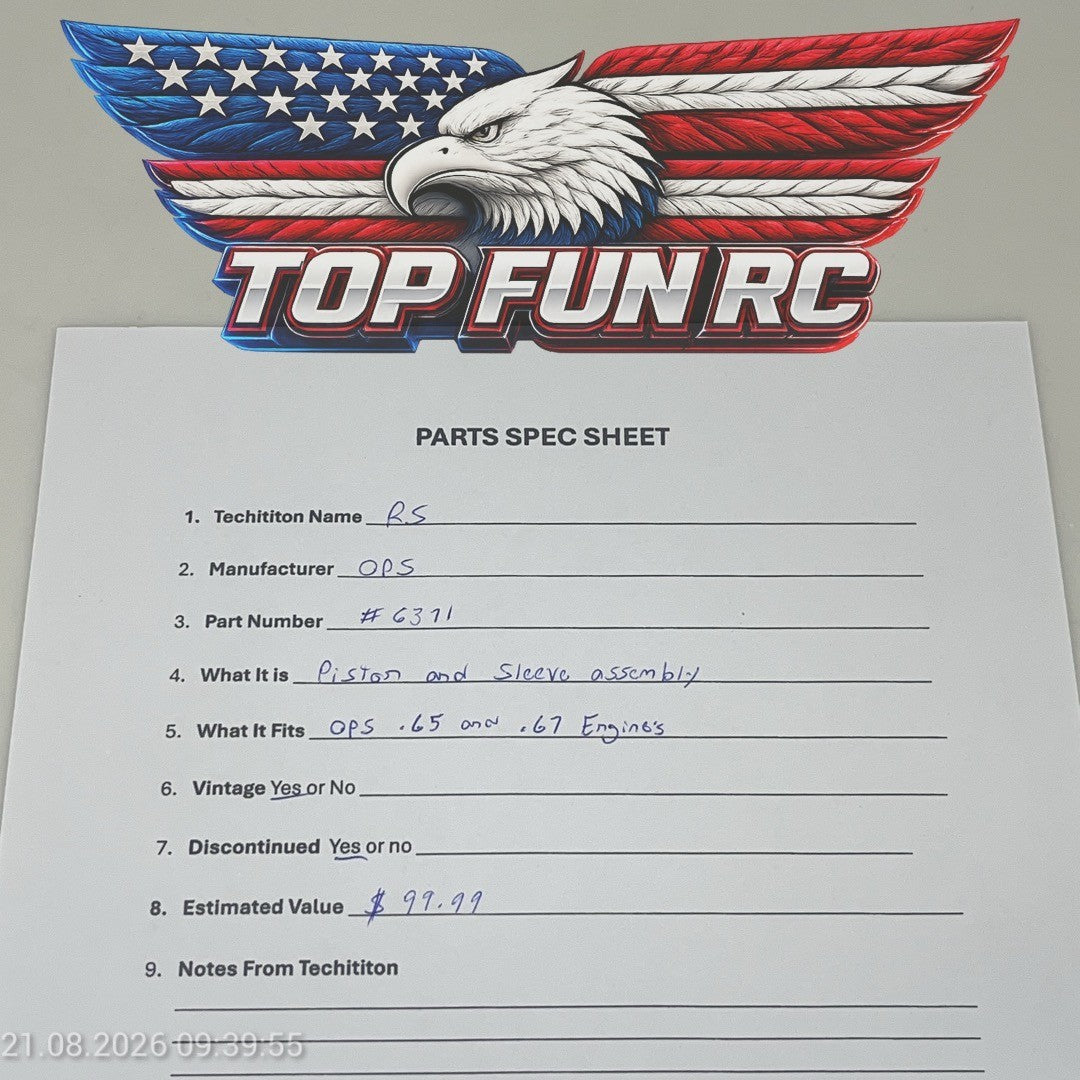 TOP FUN RC
PARTS SPEC SHEET
1. Techititon Name RS
2. Manufacturer OPS
3. Part Number #6371
4. What It is Piston and Sleeve assembly
5. What It Fits OPS .65 and .67 Engine's
6. Vintage Yes or No
7. Discontinued Yes or no
8. Estimated Value $ 99.99
9. Notes From Techititon
21.08.2026 09:39:55